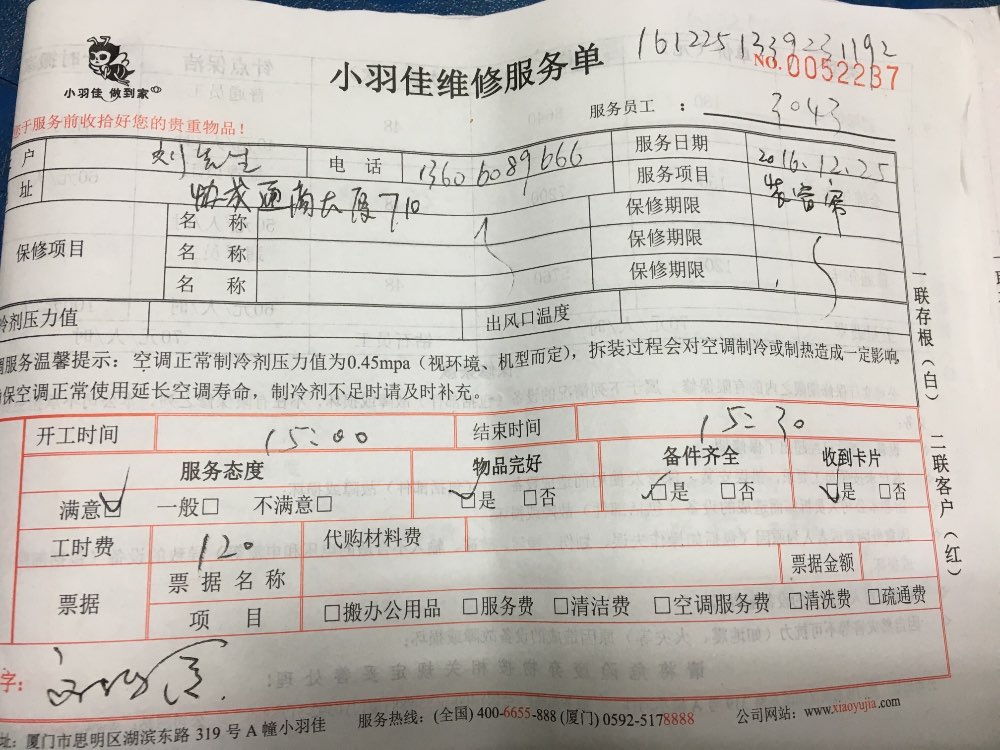 小羽佳 做到家
小羽佳维修服务单
1612251339231192
NO.0052237
服务员工 ： 3043
您于服务前收拾好您的贵重物品！
户 刘先生 电 话 13606089666 服务日期 2016.12.25
址 通商大厦710 服务项目 装窗帘
保修项目 名 称 保修期限
名 称 保修期限
名 称 保修期限
冷剂压力值 出风口温度
调服务温馨提示：空调正常制冷剂压力值为0.45mpa（视环境、机型而定），拆装过程会对空调制冷或制热造成一定影响
保空调正常使用延长空调寿命，制冷剂不足时请及时补充。
开工时间 15:00 结束时间 15:30
服务态度 物品完好 备件齐全 收到卡片
满意☑ 一般□ 不满意□ ☑是 □否 ☑是 □否 ☑是 □否
工时费 120 代购材料费
票据 票据名称 票据金额
项 目 □搬办公用品 □服务费 □清洁费 □空调服务费 □清洗费 □疏通费
字：
址：厦门市思明区湖滨东路 319 号 A 幢小羽佳 服务热线：(全国) 400-6655-888 (厦门) 0592-5178888 公司网站：www.xiaoyujia.com
一联存根（白）
二联客户（红）